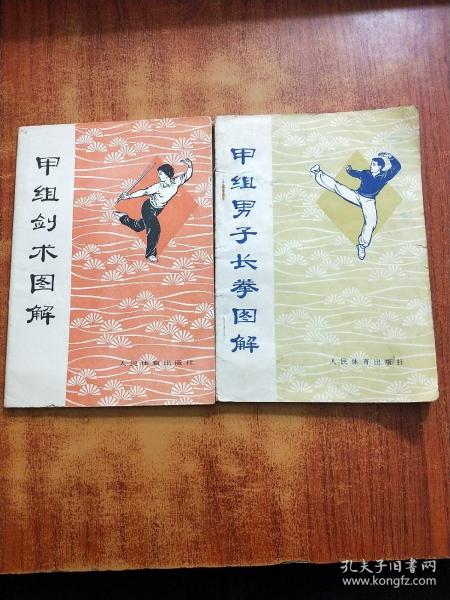 甲组剑术图解
人民体育出版社
甲组男子长拳图解
人民体育出版社
孔夫子旧书网
www.kongfz.com